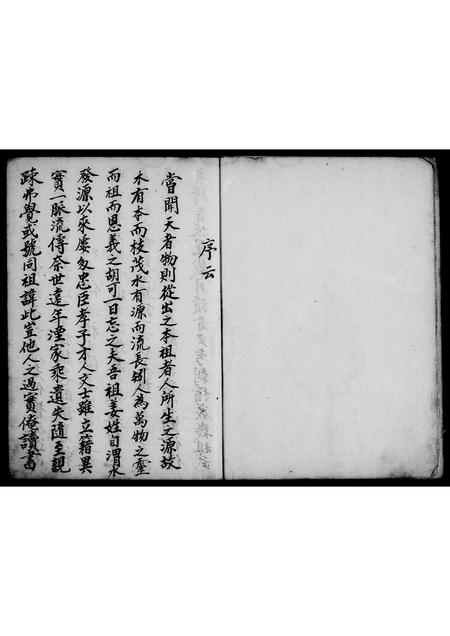 序云
當開天者物則從出之本祖者人所生之源故
木有本而枝茂水有源而流長矧人為萬物之靈
而祖而恩義之胡可一日忘之夫吾祖姜姓自渭水
發源以來屡多忠臣孝子才人文士雖立籍異
實一脈流傳奈世遠年湮家乘遺失隨至親
疎弗覺或號同祖諱此豈他人之過實俺讀書